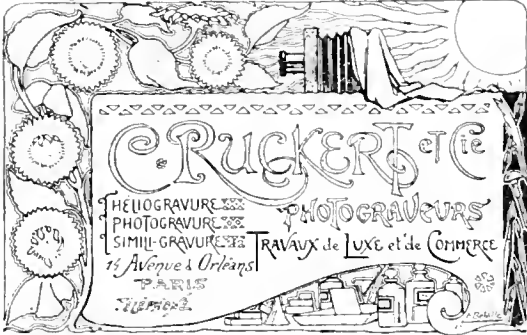 C. RUCKERT ET Cie
PHOTOGRAVEURS
HÉLIOGRAVURE
PHOTOGRAVURE
SIMILI-GRAVURE
TRAVAUX de LUXE et de COMMERCE
14 Avenue d'Orléans
PARIS
TÉLÉPHONE